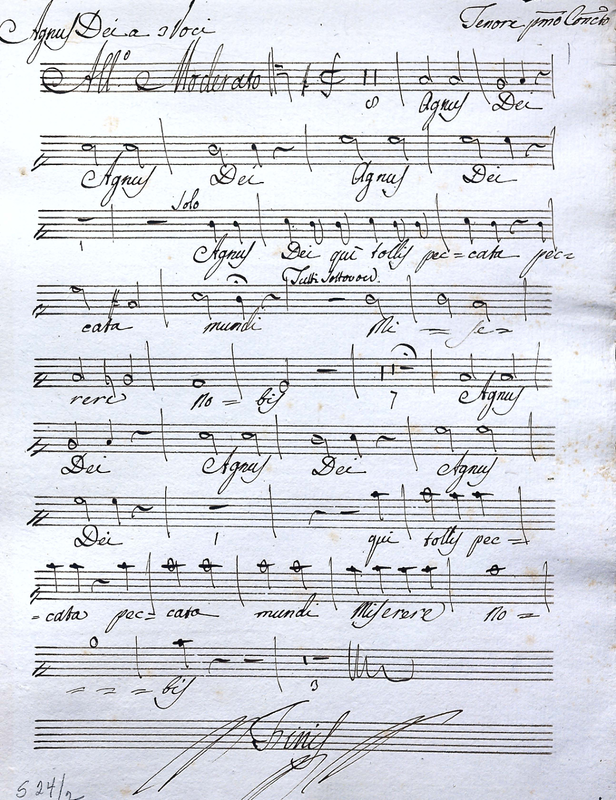 Agnus Dei a 3 Voci
Tenore pmo Concto
Allo. Moderato
8 Agnus Dei
Agnus Dei Agnus Dei
Solo
1 Agnus Dei qui tollis pec = cata pec =
Tutti sottovoce.
cata mundi Mi = se =
rere no = bis 7 Agnus
Dei Agnus Dei Agnus
Dei 1 qui tollis pec =
= cata pec = cata mundi Miserere no =
= = = bis 3
Finis
S 24/2